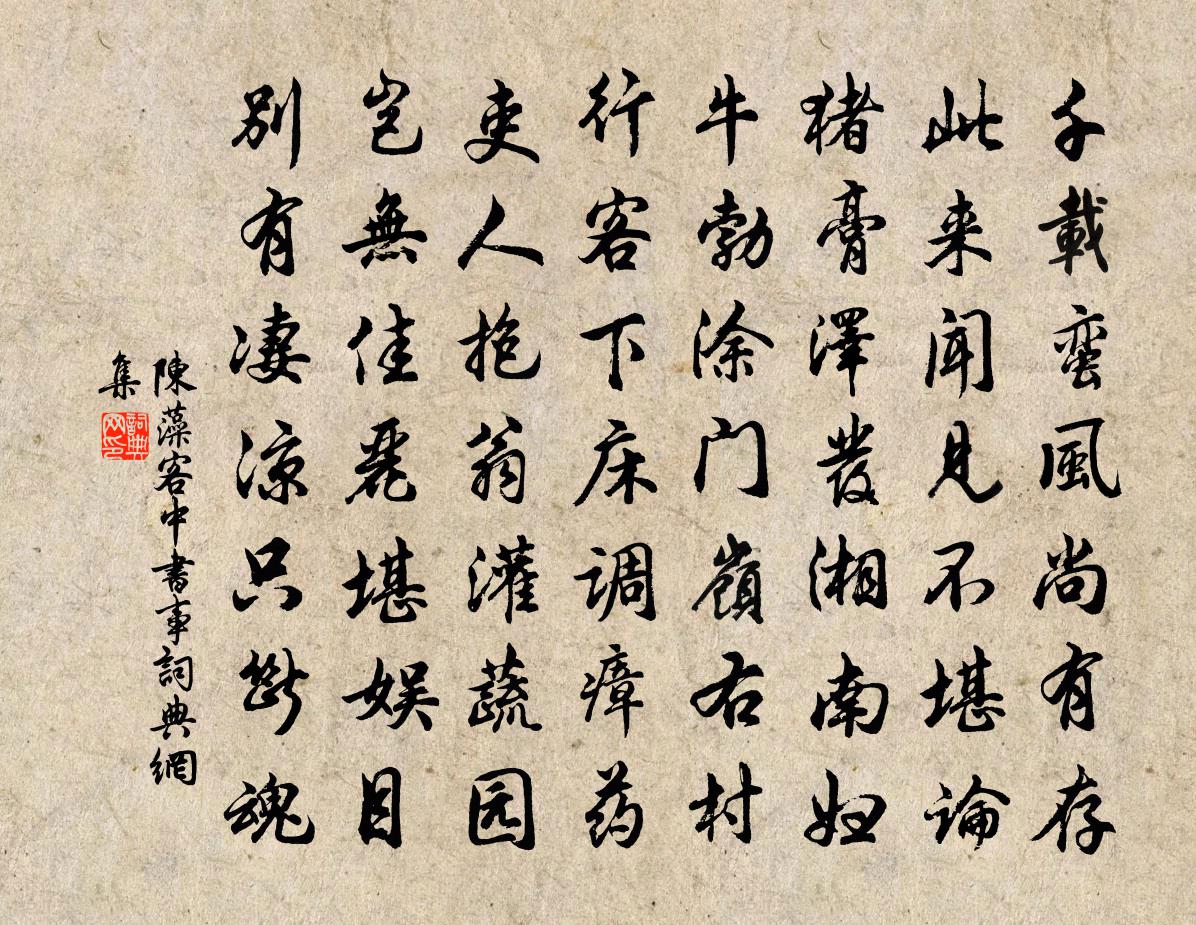 千載蛮風尚有存
此来闻见不堪論
猪膏澤發湘南妇
牛勃涂门嶺右村
行客下床调瘴药
吏人抱瓮灌蔬园
岂無佳麗堪娱目
别有凄涼只断魂
陳藻客中書事詞典網
集
詞典网印